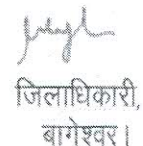 जिलाधिकारी,
बागेश्वर।